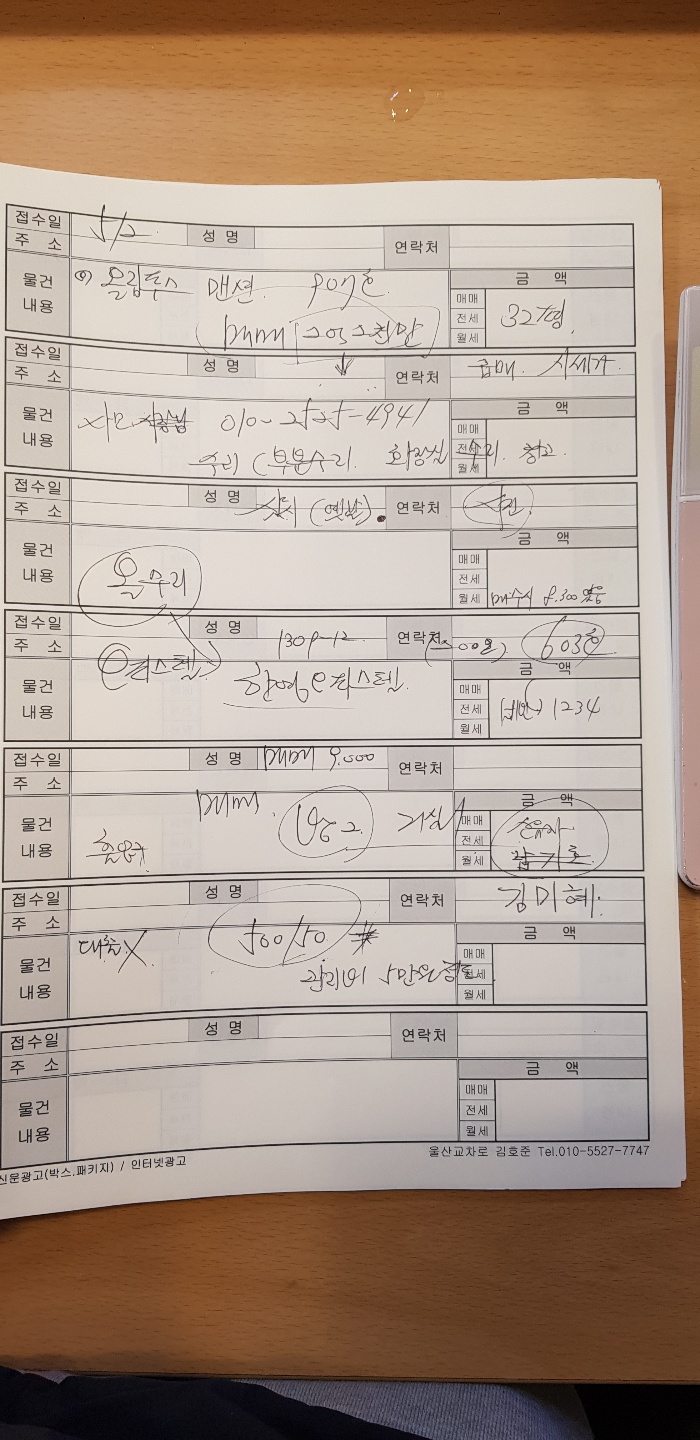 접수일 5/2 성 명 연락처
주 소
물건 내용 올림푸스 맨션. 907호 금 액
매매 2억2천만 매매 전세 월세 32평.
접수일 성 명 연락처 급매. 시세가.
주 소
물건 내용 사모 010-2525-4941 금 액
수리 (부분수리. 화장실 수리. 창고. 매매 전세 월세
접수일 성 명 샷시 (옛날). 연락처
주 소
물건 내용 올수리 금 액
매매 전세 월세
접수일 성 명 1309-12. 연락처 603호
주 소 오피스텔.
물건 내용 오피스텔. 금 액
매매 전세 월세 1234
접수일 성 명 매매 9.000 연락처
주 소
물건 내용 매매. 방2 거실1 금 액
매매 전세 월세
접수일 성 명 연락처 김미혜.
주 소 500/50
물건 내용 대출X. 금 액
관리비 5만원정도. 매매 전세 월세
접수일 성 명 연락처
주 소
물건 내용 금 액
매매 전세 월세
신문광고(박스.패키지) / 인터넷광고 울산교차로 김호준 Tel.010-5527-7747